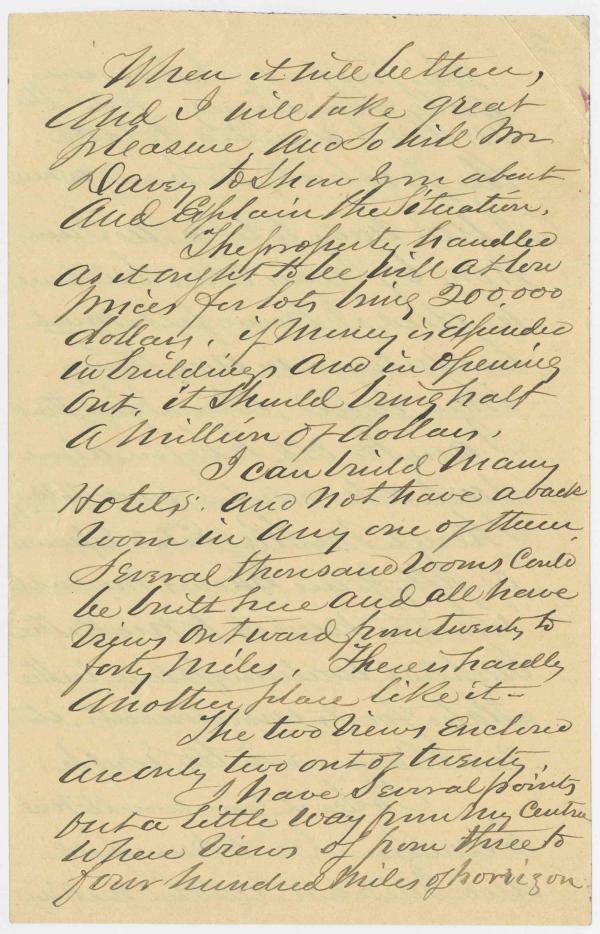 When it will be thus,
And I will take great
pleasure, And so will Mr
Davey to show you about
And Explain the Situation.
The property, handled
as it ought to be will at low
prices for lots bring 200,000
dollars, if money is Expended
in buildings And in Opening
Out, it Should bring half
A Million of dollars.
I can build Many
Hotels. And Not have a back
room in Any one of them.
Several thousand rooms Could
be built here and all have
Views Outward from twenty to
forty Miles. There is hardly
Another place like it -
The two Views Enclosed
are only two out of twenty.
I have Several points
out a little way from my Centre
Where Views of from three to
four hundred Miles of horizon